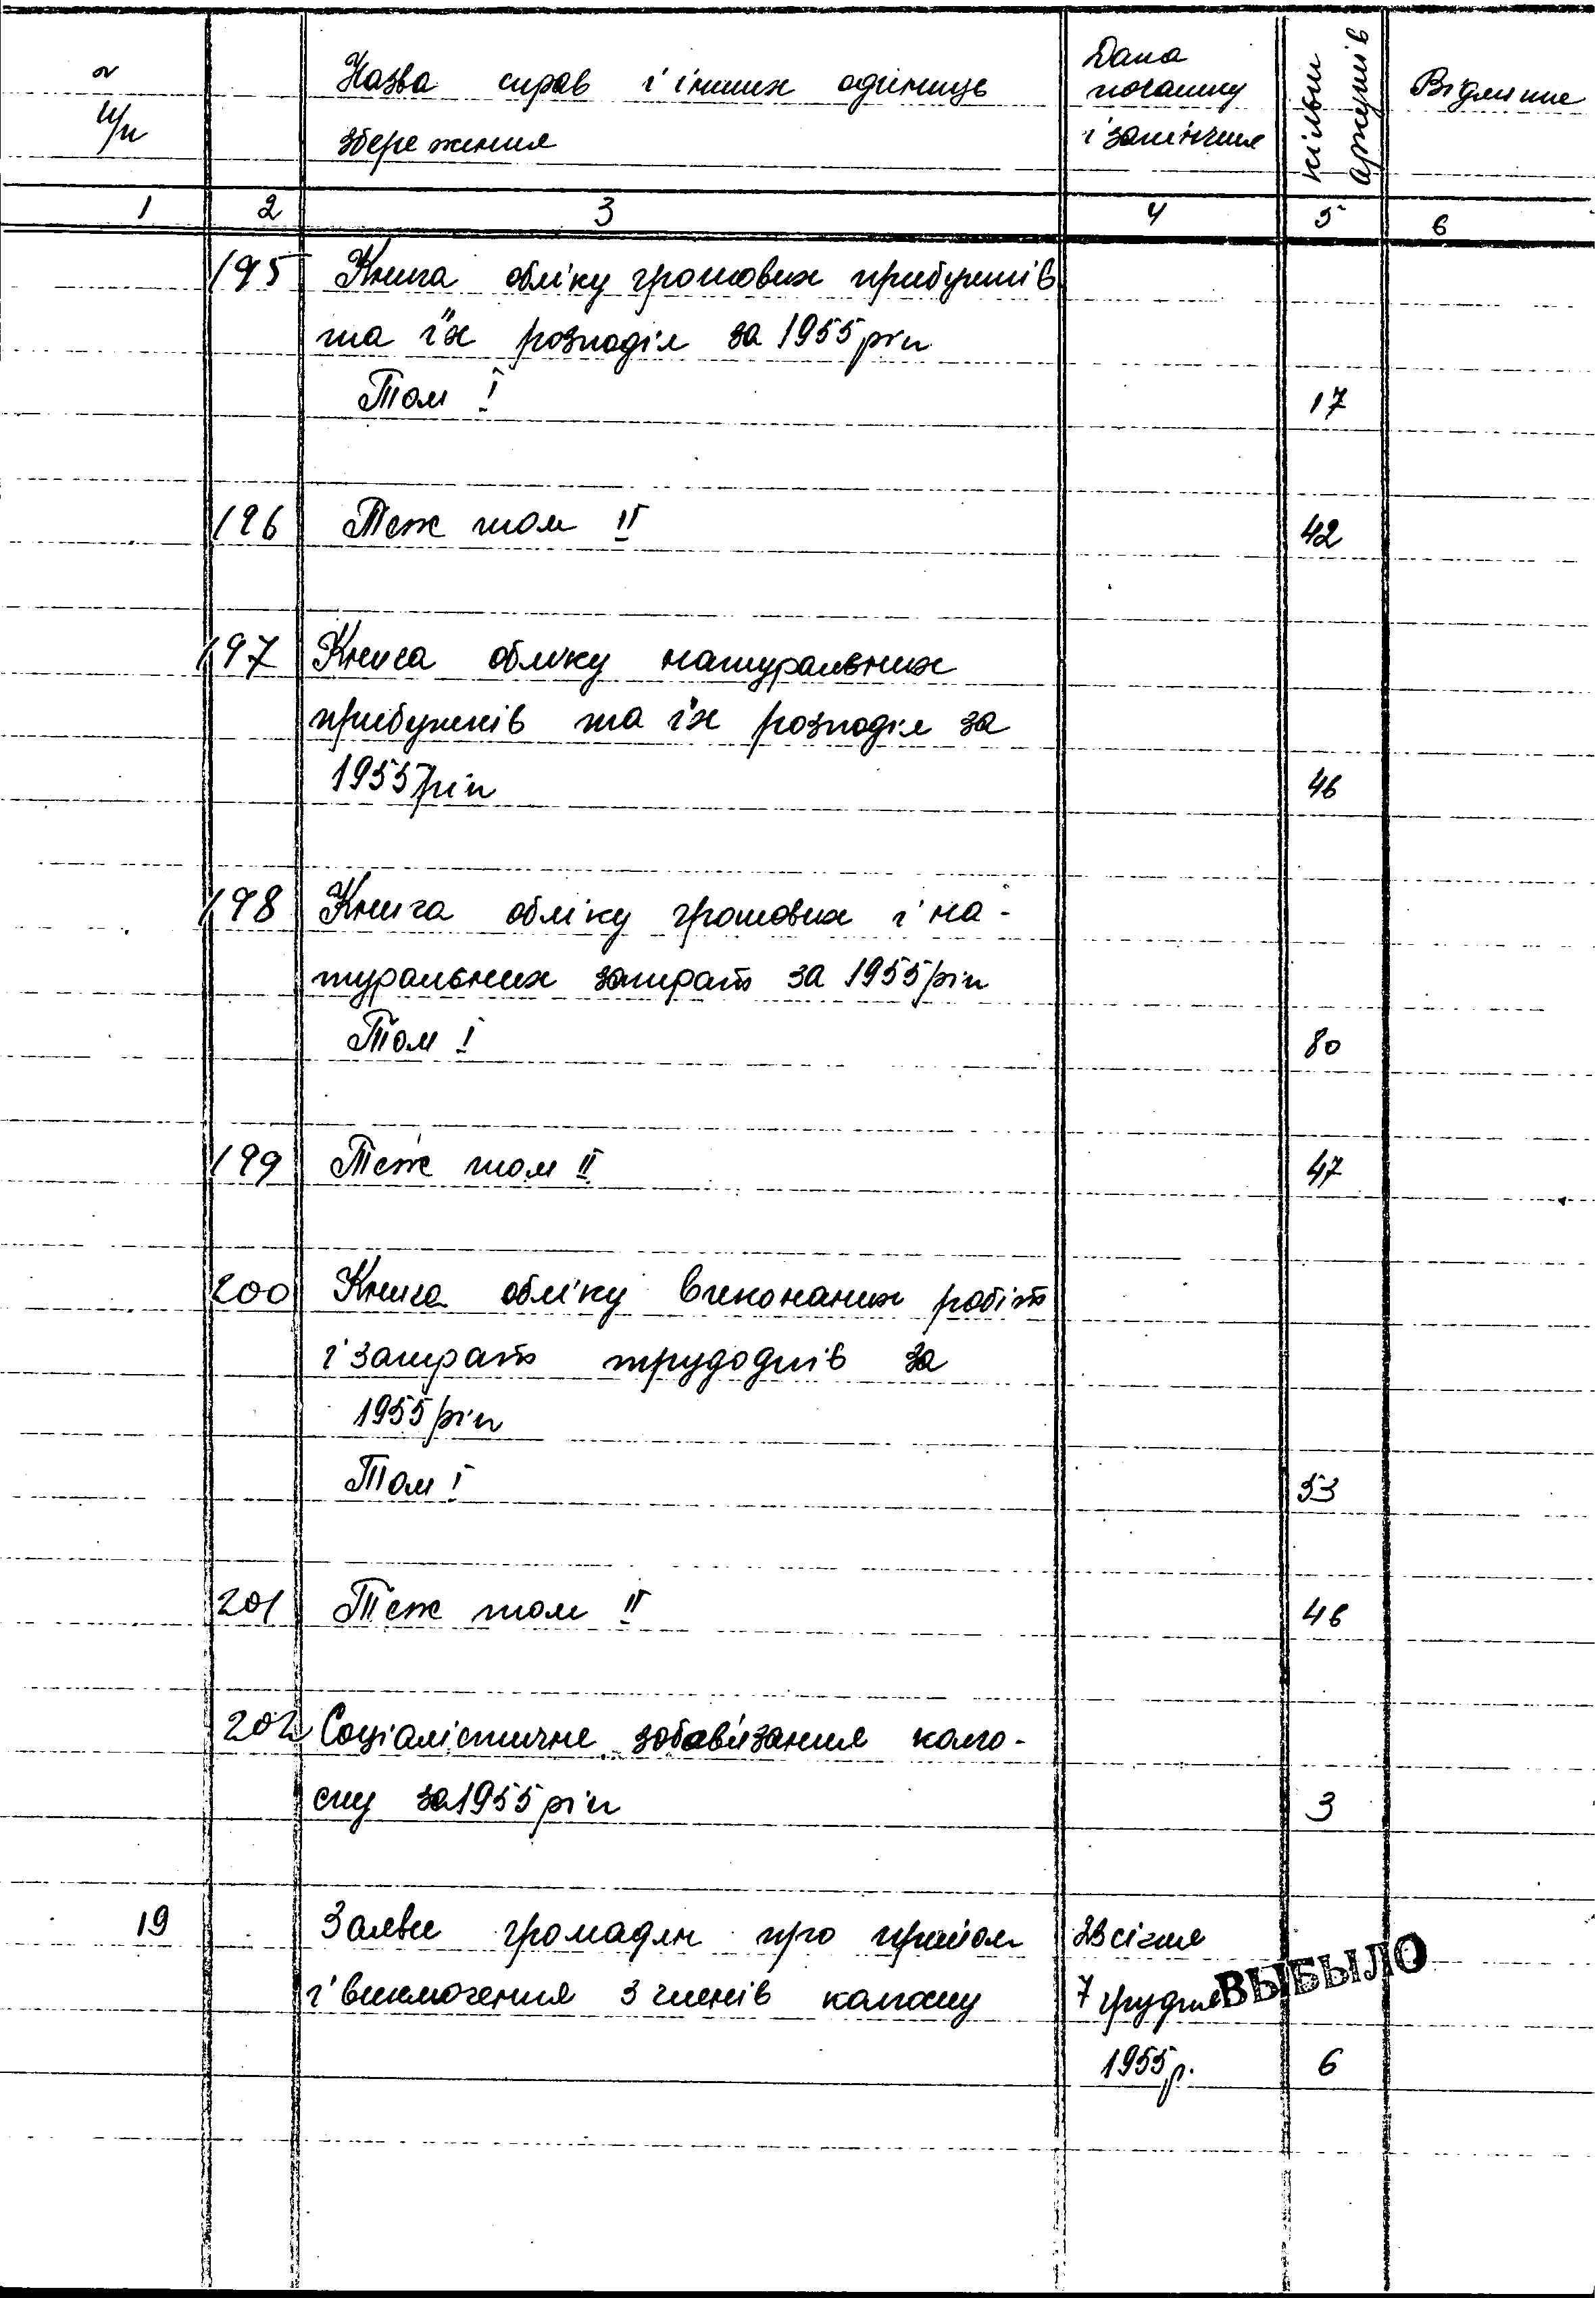 № п/п
Назва справ і інших одиниць збереження
Дата початку і закінчення
Кільк аркушів
1 2 3 4 5 6
195 Книга обліку грошових прибутків
та їх розподіл за 1955 рік
Том I 17
196 Теж том II 42
197 Книга обліку натуральних
прибутків та їх розподіл за
1955 рік 46
198 Книга обліку грошових і на-
туральних затрат за 1955 рік
Том I 80
199 Теж том II 47
200 Книга обліку виконаних робіт
і затрат трудоднів за
1955 рік
Том I 53
201 Теж том II 46
202 Соціалістичне зобов'язання колго-
спу за 1955 рік 3
19 Заяви громадян про прийом 23 січня
і виключення з членів колгоспу 7 грудня ВЫБЫЛО
1955 р. 6